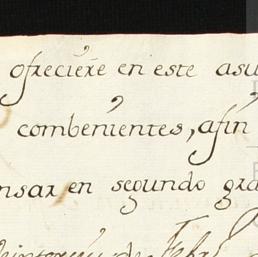 ofreciere en este asu
combenientes, afin
nsar en segundo gra
de Febr